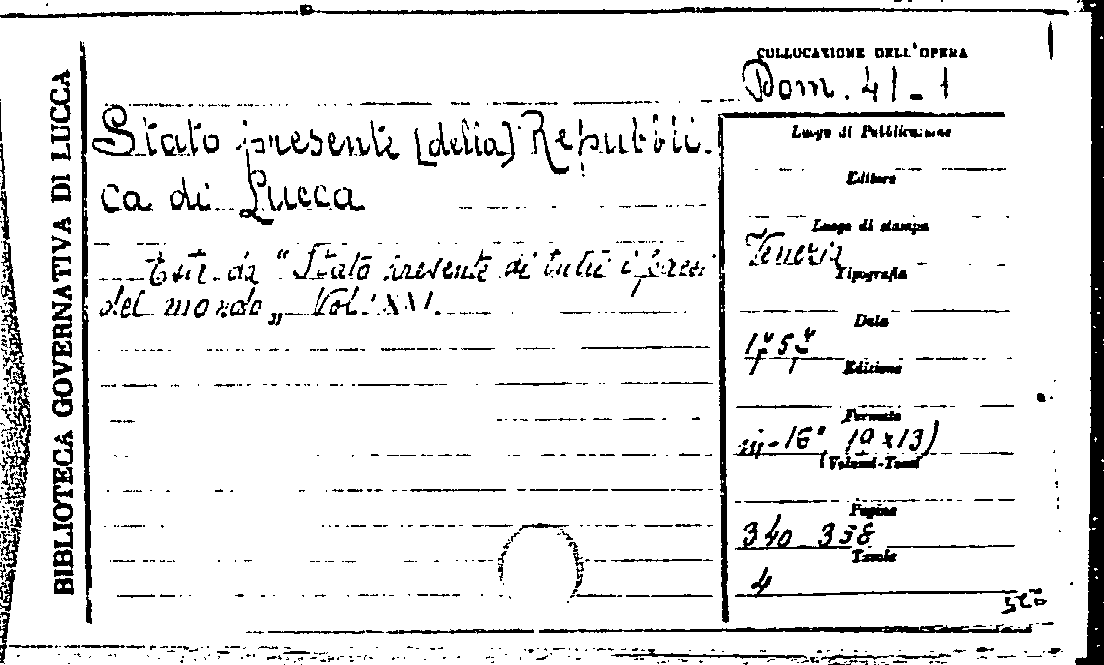 BIBLIOTECA GOVERNATIVA DI LUCCA
COLLOCAZIONE DELL'OPERA
Dom. 41-1
Stato presente [della] Repubbli-
ca di Lucca
Estr. da "Stato presente di tutti i paesi
del mondo„ Vol. XXI.
Luogo di Pubblicazione
Editore
Luogo di stampa
Venezia
Tipografia
Data
Edizione
Formato
in-16° (19x13)
(Volumi-Tomi
Pagine
340 358
Tavole
4